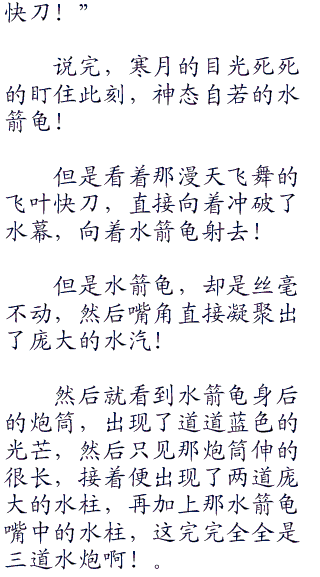 快刀！”
说完，寒月的目光死死
的盯住此刻，神态自若的水
箭龟！
但是看着那漫天飞舞的
飞叶快刀，直接向着冲破了
水幕，向着水箭龟射去！
但是水箭龟，却是丝毫
不动，然后嘴角直接凝聚出
了庞大的水汽！
然后就看到水箭龟身后
的炮筒，出现了道道蓝色的
光芒，然后只见那炮筒伸的
很长，接着便出现了两道庞
大的水柱，再加上那水箭龟
嘴中的水柱，这完完全全是
三道水炮啊！。